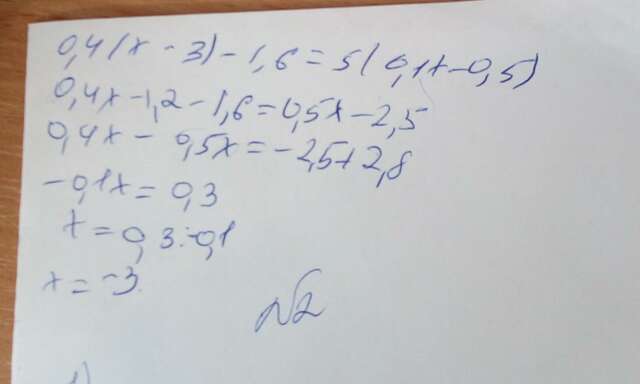 0,4(x - 3) - 1,6 = 5(0,1x - 0,5)
0,4x - 1,2 - 1,6 = 0,5x - 2,5
0,4x - 0,5x = -2,5 + 2,8
-0,1x = 0,3
x = 0,3 : -0,1
x = -3.
№2